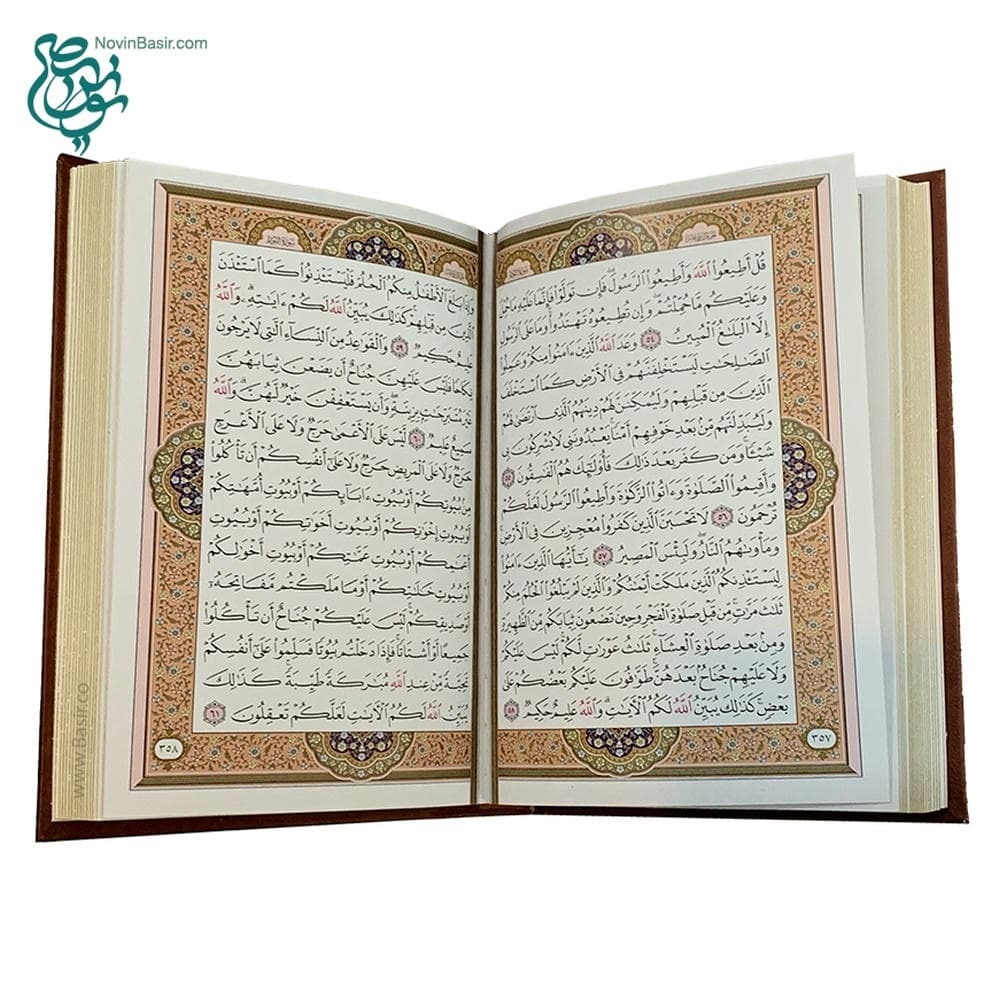 NovinBasir.com
قُلۡ أَطِيعُواْ ٱللَّهَ وَأَطِيعُواْ ٱلرَّسُولَۖ فَإِن تَوَلَّوۡاْ فَإِنَّمَا عَلَيۡهِ مَا حُمِّلَ
وَعَلَيۡكُم مَّا حُمِّلۡتُمۡۖ وَإِن تُطِيعُوهُ تَهۡتَدُواْۚ وَمَا عَلَى ٱلرَّسُولِ
إِلَّا ٱلۡبَلَٰغُ ٱلۡمُبِينُ ٥٤ وَعَدَ ٱللَّهُ ٱلَّذِينَ ءَامَنُواْ مِنكُمۡ وَعَمِلُواْ
ٱلصَّٰلِحَٰتِ لَيَسۡتَخۡلِفَنَّهُمۡ فِي ٱلۡأَرۡضِ كَمَا ٱسۡتَخۡلَفَ
ٱلَّذِينَ مِن قَبۡلِهِمۡ وَلَيُمَكِّنَنَّ لَهُمۡ دِينَهُمُ ٱلَّذِي ٱرۡتَضَىٰ لَهُمۡ
وَلَيُبَدِّلَنَّهُم مِّنۢ بَعۡدِ خَوۡفِهِمۡ أَمۡنٗاۚ يَعۡبُدُونَنِي لَا يُشۡرِكُونَ بِي
شَيۡـٔٗاۚ وَمَن كَفَرَ بَعۡدَ ذَٰلِكَ فَأُوْلَٰٓئِكَ هُمُ ٱلۡفَٰسِقُونَ ٥٥
وَأَقِيمُواْ ٱلصَّلَوٰةَ وَءَاتُواْ ٱلزَّكَوٰةَ وَأَطِيعُواْ ٱلرَّسُولَ لَعَلَّكُمۡ
تُرۡحَمُونَ ٥٦ لَا تَحۡسَبَنَّ ٱلَّذِينَ كَفَرُواْ مُعۡجِزِينَ فِي ٱلۡأَرۡضِۚ
وَمَأۡوَىٰهُمُ ٱلنَّارُۖ وَلَبِئۡسَ ٱلۡمَصِيرُ ٥٧ يَٰٓأَيُّهَا ٱلَّذِينَ ءَامَنُواْ
لِيَسۡتَـٔۡذِنكُمُ ٱلَّذِينَ مَلَكَتۡ أَيۡمَٰنُكُمۡ وَٱلَّذِينَ لَمۡ يَبۡلُغُواْ ٱلۡحُلُمَ مِنكُمۡ
ثَلَٰثَ مَرَّٰتٖۚ مِّن قَبۡلِ صَلَوٰةِ ٱلۡفَجۡرِ وَحِينَ تَضَعُونَ ثِيَابَكُم مِّنَ ٱلظَّهِيرَةِ
وَمِنۢ بَعۡدِ صَلَوٰةِ ٱلۡعِشَآءِۚ ثَلَٰثُ عَوۡرَٰتٖ لَّكُمۡۚ لَيۡسَ عَلَيۡكُمۡ
وَلَا عَلَيۡهِمۡ جُنَاحُۢ بَعۡدَهُنَّۚ طَوَّٰفُونَ عَلَيۡكُم بَعۡضُكُمۡ عَلَىٰ
بَعۡضٖۚ كَذَٰلِكَ يُبَيِّنُ ٱللَّهُ لَكُمُ ٱلۡأٓيَٰتِۗ وَٱللَّهُ عَلِيمٌ حَكِيمٞ ٥٨
٣٥٧
سورة النور
وَإِذَا بَلَغَ ٱلۡأَطۡفَٰلُ مِنكُمُ ٱلۡحُلُمَ فَلۡيَسۡتَـٔۡذِنُواْ كَمَا ٱسۡتَـٔۡذَنَ
ٱلَّذِينَ مِن قَبۡلِهِمۡۚ كَذَٰلِكَ يُبَيِّنُ ٱللَّهُ لَكُمۡ ءَايَٰتِهِۦۗ وَٱللَّهُ
عَلِيمٌ حَكِيمٞ ٥٩ وَٱلۡقَوَٰعِدُ مِنَ ٱلنِّسَآءِ ٱلَّٰتِي لَا يَرۡجُونَ
نِكَاحٗا فَلَيۡسَ عَلَيۡهِنَّ جُنَاحٌ أَن يَضَعۡنَ ثِيَابَهُنَّ
غَيۡرَ مُتَبَرِّجَٰتِۭ بِزِينَةٖۖ وَأَن يَسۡتَعۡفِفۡنَ خَيۡرٞ لَّهُنَّۗ وَٱللَّهُ
سَمِيعٌ عَلِيمٞ ٦٠ لَّيۡسَ عَلَى ٱلۡأَعۡمَىٰ حَرَجٞ وَلَا عَلَى ٱلۡأَعۡرَجِ
حَرَجٞ وَلَا عَلَى ٱلۡمَرِيضِ حَرَجٞ وَلَا عَلَىٰٓ أَنفُسِكُمۡ أَن تَأۡكُلُواْ
مِنۢ بُيُوتِكُمۡ أَوۡ بُيُوتِ ءَابَآئِكُمۡ أَوۡ بُيُوتِ أُمَّهَٰتِكُمۡ
أَوۡ بُيُوتِ إِخۡوَٰنِكُمۡ أَوۡ بُيُوتِ أَخَوَٰتِكُمۡ أَوۡ بُيُوتِ
أَعۡمَٰمِكُمۡ أَوۡ بُيُوتِ عَمَّٰتِكُمۡ أَوۡ بُيُوتِ أَخۡوَٰلِكُمۡ
أَوۡ بُيُوتِ خَٰلَٰتِكُمۡ أَوۡ مَا مَلَكۡتُم مَّفَاتِحَهُۥٓ
أَوۡ صَدِيقِكُمۡۚ لَيۡسَ عَلَيۡكُمۡ جُنَاحٌ أَن تَأۡكُلُواْ
جَمِيعًا أَوۡ أَشۡتَاتٗاۚ فَإِذَا دَخَلۡتُم بُيُوتٗا فَسَلِّمُواْ عَلَىٰٓ أَنفُسِكُمۡ
تَحِيَّةٗ مِّنۡ عِندِ ٱللَّهِ مُبَٰرَكَةٗ طَيِّبَةٗۚ كَذَٰلِكَ
يُبَيِّنُ ٱللَّهُ لَكُمُ ٱلۡأٓيَٰتِ لَعَلَّكُمۡ تَعۡقِلُونَ ٦١
٣٥٨
www.Basir.co